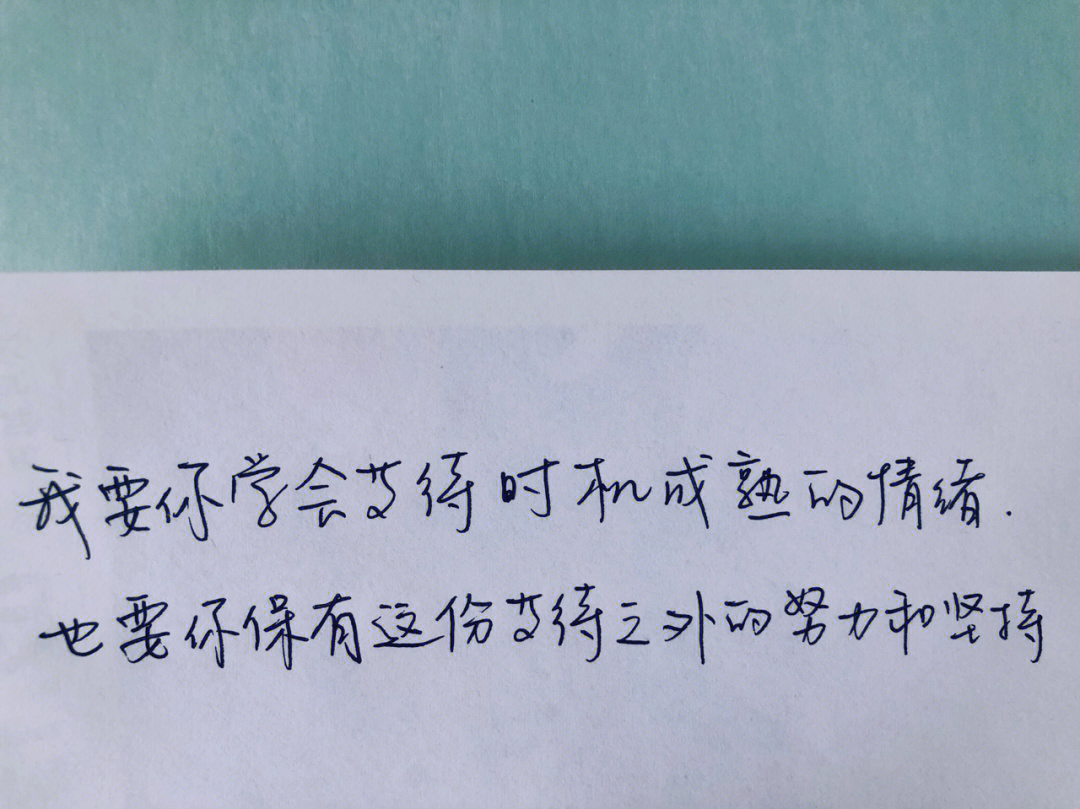 我要你学会艾待时机成熟的情绪.
也要你保有这份艾待之外的努力和坚持